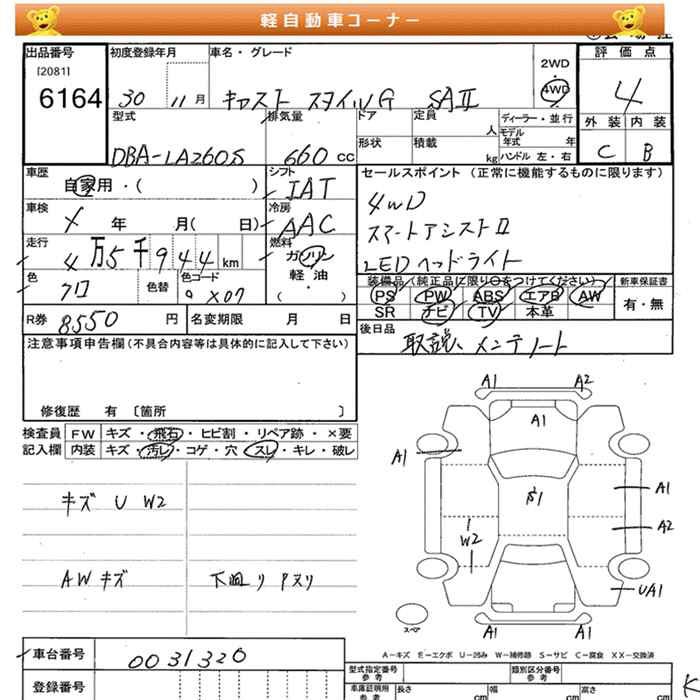 軽自動車コーナー
出品番号 初度登録年月 車名・グレード 評価点
[2081]
6164 30 11月 キャスト スタイルG SAⅡ 2WD 4WD 4
型式 排気量 ドア 定員 人 ディーラー・並行 外装 内装
形状 積載 kg モデル年式 年 ハンドル 左・右
DBA-LA260S 660cc C B
車歴 自家用・( ) シフト IAT
セールスポイント(正常に機能するものに限ります)
車検 メ 年 月( 日) 冷房 AAC
4WD
スマートアシストⅡ
LEDヘッドライト
走行 4万5千944km 燃料 ガソリン 軽油 ( )
色 クロ 色替 色コード X07
装備品(純正品に限り○をつけてください) 新車保証書
PS PW ABS エアB AW 有・無
SR ナビ TV 本革
R券 8550円 名変期限 月 日
後日品 取説、メンテノート
注意事項申告欄(不具合内容等は具体的に記入して下さい)
修復歴 有 〔箇所 〕
検査員記入欄 FW キズ・飛石・ヒビ割・リペア跡・×要
内装 キズ・汚レ・コゲ・穴・スレ・キレ・破レ
キズ U W2
AWキズ 下廻り
A1 A2
A1
A1
A1
A2
W2
UA1
A1 A1
スペア
A-キズ E-エクボ U-凹み W-補修跡 S-サビ C-腐食 XX-交換済
車台番号 0031320
登録番号
型式指定番号 参考 類別区分番号 参考
車庫証明用 参考 長さ cm 幅 cm 高さ cm